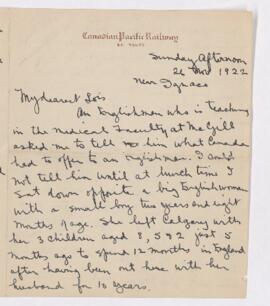 Canadian Pacific Railway
Sunday Afternoon
26 Nov 1922
Near Ignace
My dearest Lois
An Englishman who is teaching
in the Medical Faculty at McGill
asked me to tell him what Canada
had to offer to an Englishman. I could
not tell him until at lunch time I
sat down opposite a big Englishwoman
with a small boy two years and eight
months of age. She left Calgary with
her 3 children aged 8, 5 & 2 just 5
months ago to spend 12 months in England
after having been out here with her
husband for 10 years.